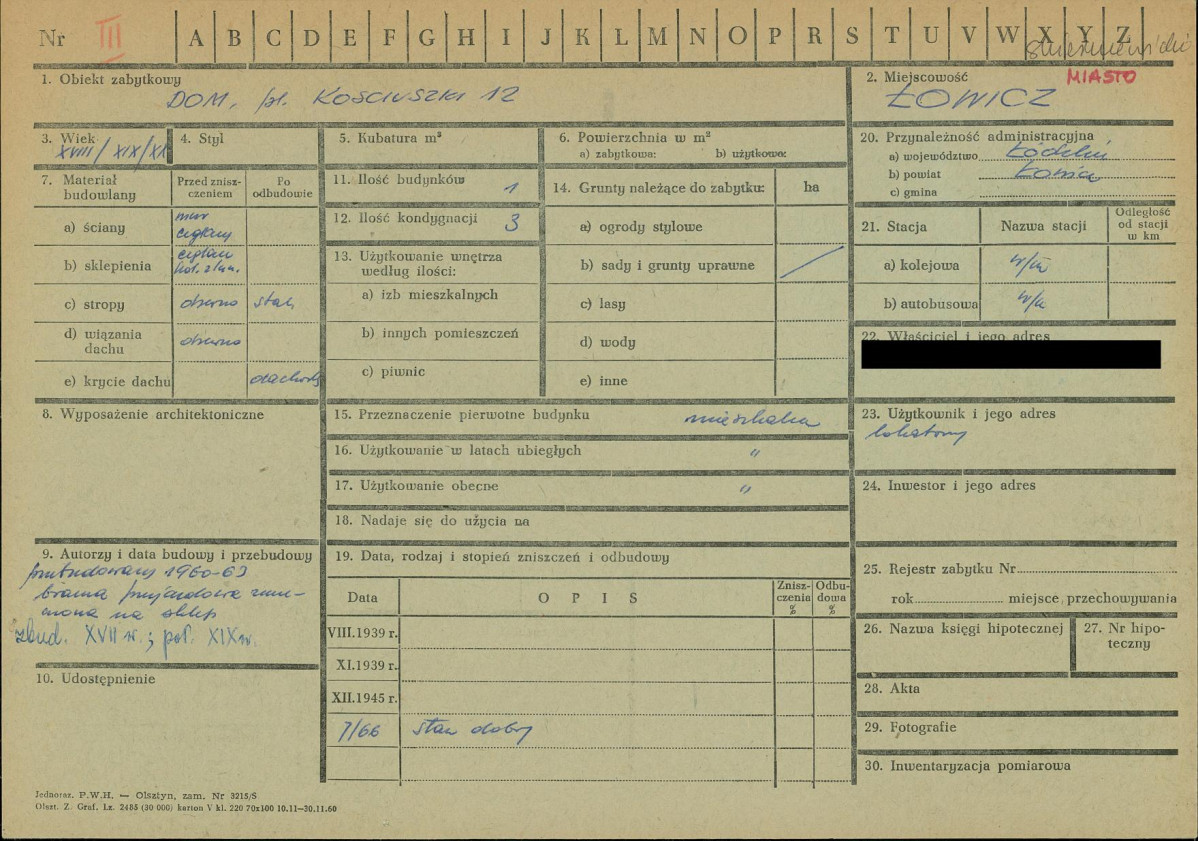 Nr III A B C D E F G H I J K L M N O P R S T U V W X Y Z
1. Obiekt zabytkowy
DOM, pl. KOŚCIUSZKI 12
2. Miejscowość MIASTO
ŁOWICZ
3. Wiek
XVIII/XIX/XX
4. Styl
5. Kubatura m³
6. Powierzchnia w m²
a) zabytkowa: b) użytkowa:
20. Przynależność administracyjna
a) województwo Łódzkie
b) powiat Łowicz
c) gmina
7. Materiał budowlany
Przed znisz-
czeniem
Po
odbudowie
a) ściany
mur
ceglany
b) sklepienia
c) stropy drewno stal
d) wiązania
dachu
drewno
e) krycie dachu dachówka
11. Ilość budynków 1
12. Ilość kondygnacji 3
13. Użytkowanie wnętrza
według ilości:
a) izb mieszkalnych
b) innych pomieszczeń
c) piwnic
14. Grunty należące do zabytku: ha
a) ogrody stylowe
b) sady i grunty uprawne
c) lasy
d) wody
e) inne
21. Stacja Nazwa stacji
Odległość
od stacji
w km
a) kolejowa w/m
b) autobusowa w/m
22. Właściciel i jego adres
8. Wyposażenie architektoniczne
15. Przeznaczenie pierwotne budynku mieszkalne
16. Użytkowanie w latach ubiegłych "
17. Użytkowanie obecne "
18. Nadaje się do użycia na
23. Użytkownik i jego adres
lokatorzy
24. Inwestor i jego adres
9. Autorzy i data budowy i przebudowy
przebudowany 1960-63
brama przejazdowa zamie-
niona na sklep
zbud. XVII w.; poł. XIX w.
10. Udostępnienie
19. Data, rodzaj i stopień zniszczeń i odbudowy
Data OPIS
Znisz-
czenia
%
Odbu-
dowa
%
VIII.1939 r.
XI.1939 r.
XII.1945 r.
7/66 stan dobry
25. Rejestr zabytku Nr
rok miejsce przechowywania
26. Nazwa księgi hipotecznej
27. Nr hipo-
teczny
28. Akta
29. Fotografie
30. Inwentaryzacja pomiarowa
Jednoraz. P.W.H. — Olsztyn, zam. Nr 3215/S
Olszt. Z. Graf. Lz. 2485 (30 000) karton V kl. 220 70x100 10.11—30.11.60